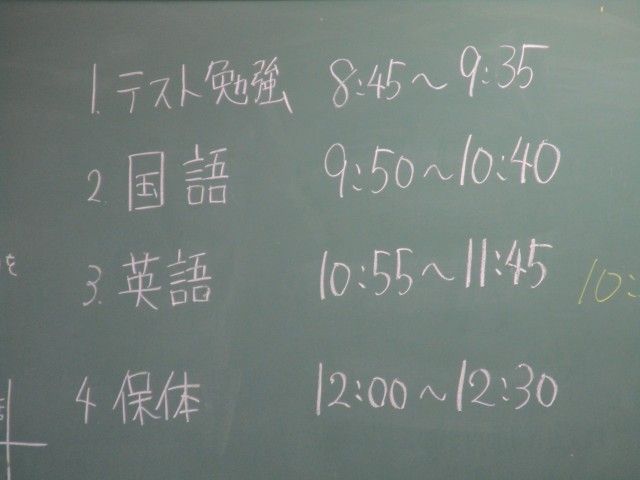 1. テスト勉強 8:45～9:35
2. 国語 9:50～10:40
3. 英語 10:55～11:45
4 保体 12:00～12:30
を
10: